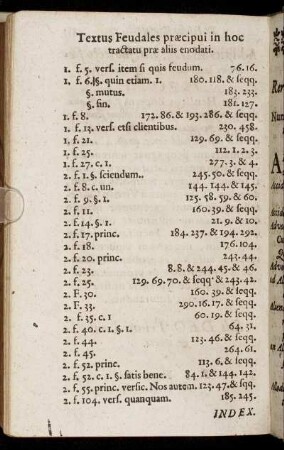 Textus Feudales præcipui in hoc
tractatu præ aliis enodati.
1. f. 5. vers. item si quis feudum. 76. 16.
1. f. 6. §. quin etiam. 1. 180. 118. & seqq.
§. mutus. 183. 233.
§. fin. 181. 127.
1. f. 8. 172. 86. & 193. 286. & seqq.
1. f. 13. vers. etsi clientibus. 230. 458.
1. f. 21. 129. 69. & seqq.
1. f. 25. 112. 1. 2. 3.
1. f. 27. c. 1. 277. 3. & 4.
2. f. 1. §. sciendum.. 245. 50. & seqq.
2. f. 8. c. un. 144. 144. & 145.
2. f. 9. §. 1. 125. 58. 59. & 60.
2. f. 11. 160. 39. & seqq.
2. f. 14. §. 1. 21. 9. & 10.
2. f. 17. princ. 184. 237. & 194. 292.
2. f. 18. 176. 104.
2. f. 20. princ. 243. 44.
2. f. 23. 8. 8. & 244. 45. & 46.
2. f. 25. 129. 69. 70. & seqq. & 243. 42.
2. F. 30. 160. 39. & seqq.
2. F. 33. 290. 16. 17. & seqq.
2. f. 35. c. 1 60. 19. & seqq.
2. f. 40. c. 1. §. 1. 64. 31.
2. f. 44. 123. 46. & seqq.
2. f. 45. 264. 61.
2. f. 52. princ. 113. 6. & seqq.
2. f. 52. c. 1. §. satis bene. 84. 1. & 144. 142.
2. f. 55. princ. versic. Nos autem. 123. 47. & sqq.
2. f. 104. vers. quanquam. 185. 245.
INDEX.